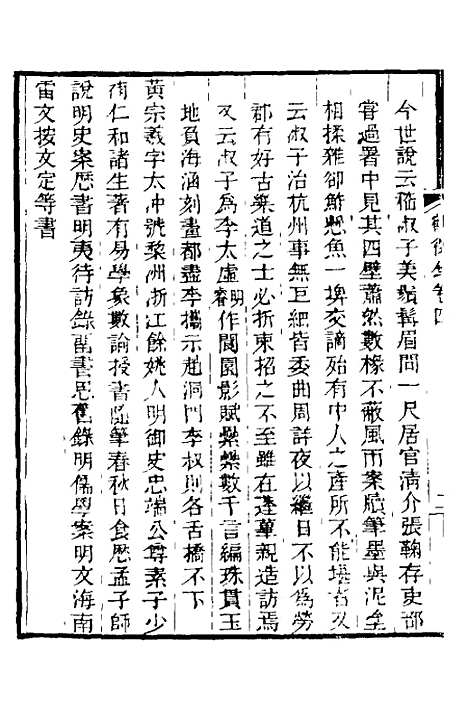 今世說云嵇叔子美鬚髯眉間一尺居官清介張鞠存吏部
嘗過署中見其四壁蕭然數椽不蔽風雨案牘筆墨與泥坌
相揉雜卻鮓懸魚一埤交謫殆有中人之產所不能堪者又
云叔子治杭州事無巨細皆委曲周詳夜以繼日不以爲勞
郡有好古樂道之士必折柬招之不至雖在蓬蓽親造訪焉
又云叔子爲李太虛明睿作閬園影賦纍纍數千言編珠貫玉
地負海涵刻畫都盡李攜示趙洞門李叔則各舌橋不下
黃宗羲字太冲號黎洲浙江餘姚人明御史忠端公尊素子少
有仁和諸生著有易學象數論授書隨筆春秋日食歷孟子師
說明史案歷書明夷待訪錄畱書思舊錄明儒學案明文海南
雷文按文定等書
卷四
二